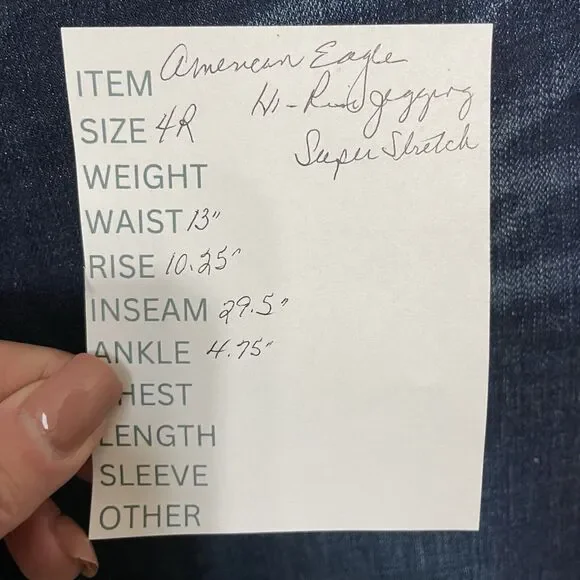 ITEM American Eagle
Hi-Rise Jegging
SIZE 4R
Super Stretch
WEIGHT
WAIST 13"
RISE 10.25"
INSEAM 29.5"
ANKLE 4.75"
HEST
LENGTH
SLEEVE
OTHER